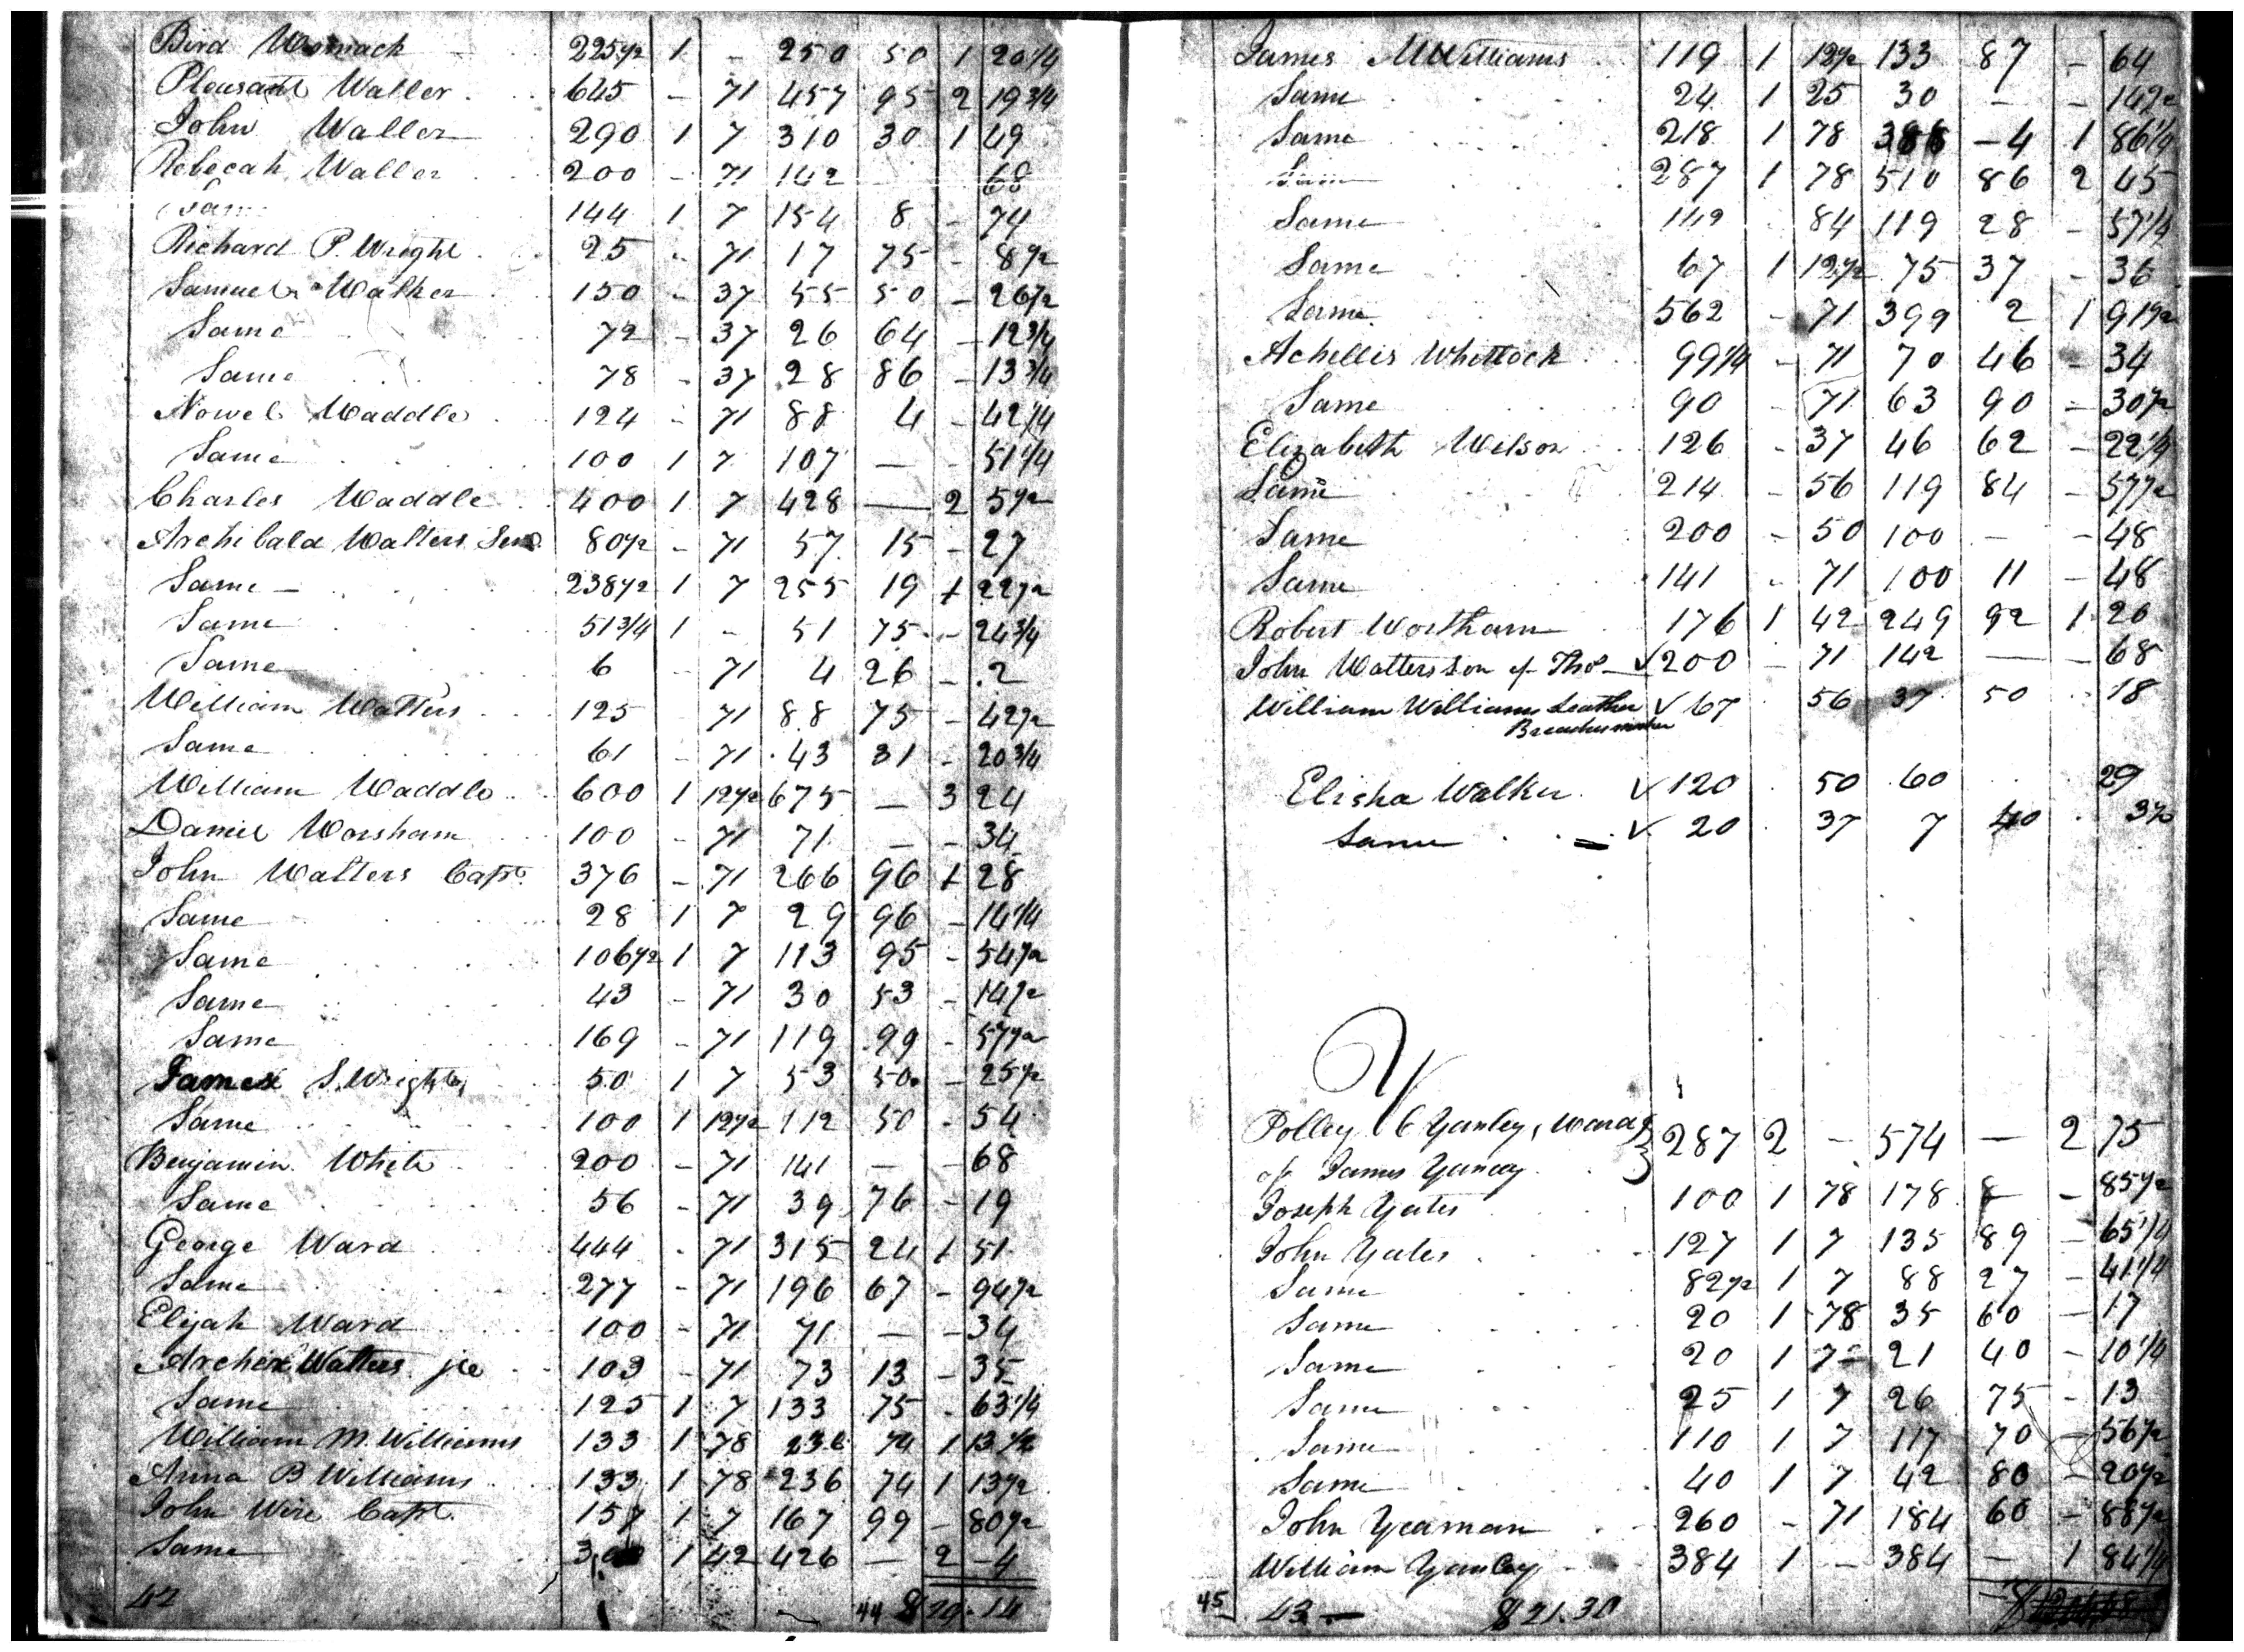 Bird Womack - 225 1/2 1 - 250 50 1 20 1/4
Pleasant Waller 645 - 71 457 95 2 19 3/4
John Waller 290 1 7 310 30 1 49
Rebecah Waller 200 - 71 142 68
Same 144 1 7 154 8 - 74
Richard P. Wright 25 - 71 17 75 - 8 1/2
Samuel Walker 150 - 37 55 50 - 26 1/2
Same 72 - 37 26 64 - 12 3/4
Same 78 - 37 28 86 - 13 3/4
Nowel Waddle 124 - 71 88 4 - 42 1/4
Same 100 1 7 107 — - 51 1/4
Charles Waddle 400 1 7 428 — 2 5 1/2
Archibald Walters Senr 80 1/2 - 71 57 15 - 27
Same - 238 1/2 1 7 255 19 1 22 1/2
Same 51 3/4 1 - 51 75 - 24 3/4
Same 6 - 71 4 26 - 2
William Walters 125 71 88 75 - 42 1/2
Same 61 - 71 43 31 - 20 3/4
William Waddle 600 1 12 1/2 675 — 3 24
Daniel Worsham 100 - 71 71 - - 34
John Walters Capt. 376 - 71 266 96 1 28
Same 28 1 7 29 96 - 14 1/4
Same 106 1/2 1 7 113 95 - 54 1/2
Same 43 - 71 30 53 - 14 1/2
Same 169 - 71 119 99 - 57 1/2
James S. Wright 50 1 7 53 50 - 25 1/2
Same 100 1 12 1/2 112 50 - 54
Benjamin White 200 - 71 141 — - 68
Same 56 - 71 39 76 - 19
George Ward 444 - 71 315 24 1 51
Same 277 - 71 196 67 - 94 1/2
Elijah Ward 100 - 71 71 — - 34
Archer Walters jr 103 - 71 73 13 - 35
Same 125 1 7 133 75 - 63 1/4
William M. Williams 133 1 78 236 74 1 13 1/2
Anna B Williams 133 1 78 236 74 1 13 1/2
John Wire Capt. 157 1 7 167 99 - 80 1/2
Same 1 42 426 — 2 - 4
42 44 $ 29.14
James M Williams 119 1 12 1/2 133 87 - 64
Same 24 1 25 30 - - 14 1/2
Same 218 1 78 388 - 4 1 86 1/4
Same 287 1 78 510 86 2 45
Same 142 84 119 28 - 57 1/4
Same 67 1 12 1/2 75 37 - 36
Same 562 - 71 399 2 1 91 1/2
Achilles Whitlock 99 1/4 - 71 70 46 - 34
Same 90 - 71 63 90 - 30 1/2
Elizabeth Wilson 126 - 37 46 62 - 22 1/4
Same 214 - 56 119 84 - 57 1/2
Same 200 - 50 100 - - 48
Same 141 - 71 100 11 - 48
Robert Wortham 176 1 42 249 92 1 20
John Watters son of Thos — √ 200 - 71 142 — - 68
William Williams Leather √ 67 56 37 50 18
Breachesmaker
Elisha Walker √ 120 50 60 29
Same √ 20 37 7 40 3 1/2
Y
Polley C Yanley, ward
of James Yancey } 287 2 - 574 — 2 75
Joseph Yates 100 1 78 178 - 85 1/2
John Yates 127 1 7 135 89 - 65 1/4
Same 82 1/2 1 7 88 27 - 41 1/4
Same 20 1 78 35 60 - 17
Same 20 1 7 21 40 - 10 1/4
Same 25 1 7 26 75 - 13
Same 110 1 7 117 70 - 56 1/2
Same 40 1 7 42 80 - 20 1/2
John Yeaman 260 - 71 184 60 - 88 1/2
William Yancey 384 1 - 384 — 1 84 1/4
45 43 — $ 21.30